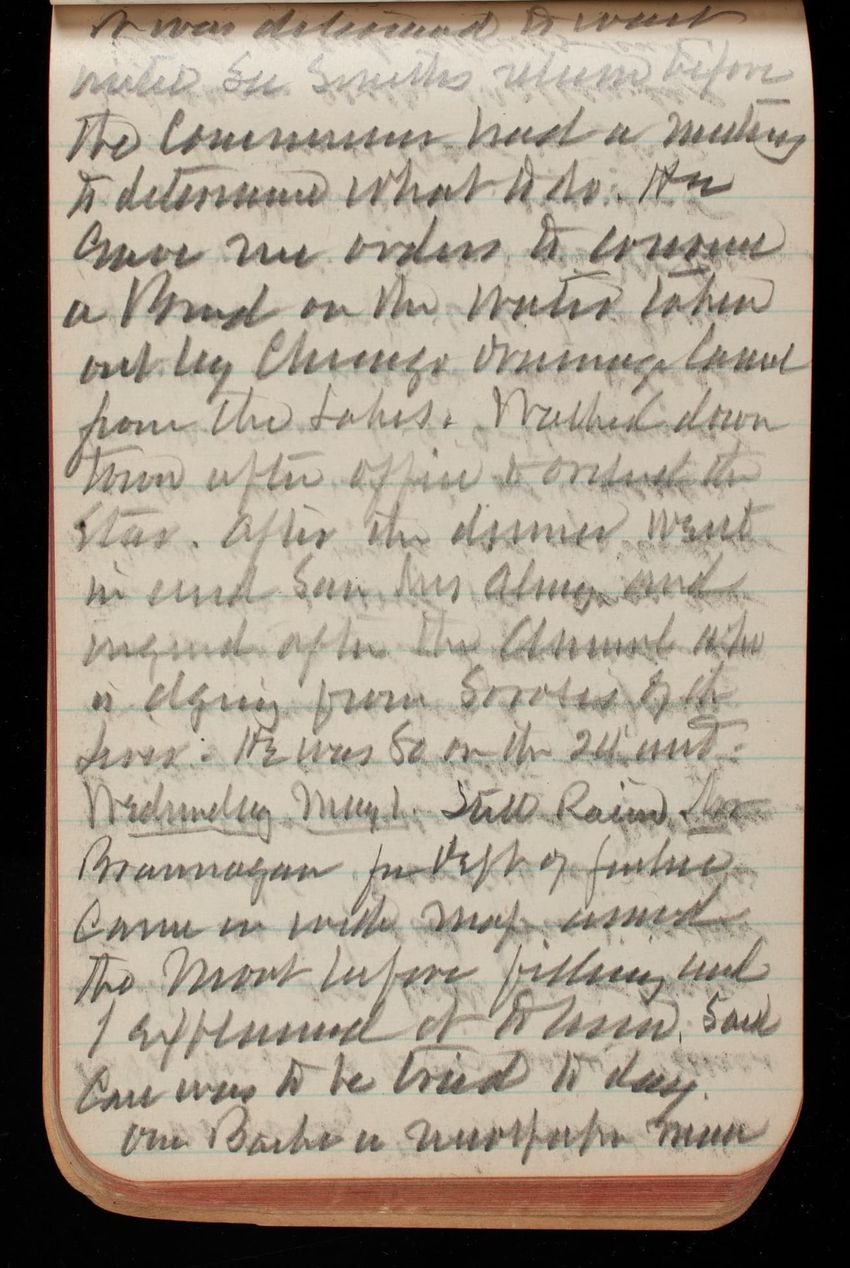 It was determined to wait
until Sec Smiths return before
the Commission had a meeting
to determine what to do. He
Gave me orders to convene
a Board on the water taken
out by Chicago Drainage Canal
from the Lakes. Walked down
town after office to the
Star. After the dinner went
in and Saw Mrs Almy and
inquired after the Admiral who
is dying from Sorosis of the
Liver. He was 80 on the 24 inst.
Wednesday May 1. Still Raind. Mr
Brannagan fr Dept of Justice
Came in with map around
the Mont before filling and
I explained it to him. Said
Case was to be tried to day.
One Bache a newspaper man